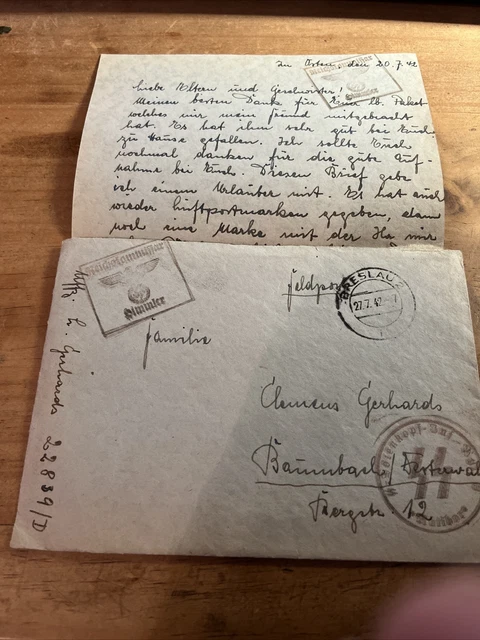 Im Osten, den 20.7.42
Liebe Eltern und Geschwister!
Meinen besten Dank für Euer lb. Paket
welches mir mein Freund mitgebracht
hat. Es hat ihm sehr gut bei Euch
zu Hause gefallen. Ich sollte Euch
nochmal danken für die gute Auf-
nahme bei Euch. Diesen Brief gebe
ich einem Urlauber mit. Es hat auch
wieder Luftpostmarken gegeben,
noch eine Marke mit der Ihr mir
Reichskommissar
Himmler
Feldpost
BRESLAU 2
27.7.42
Familie
Clemens Gerhards
Baumbach Westerwald
Bergstr. 12
Uffz. H. Gerhards 22839/D
Totenkopf